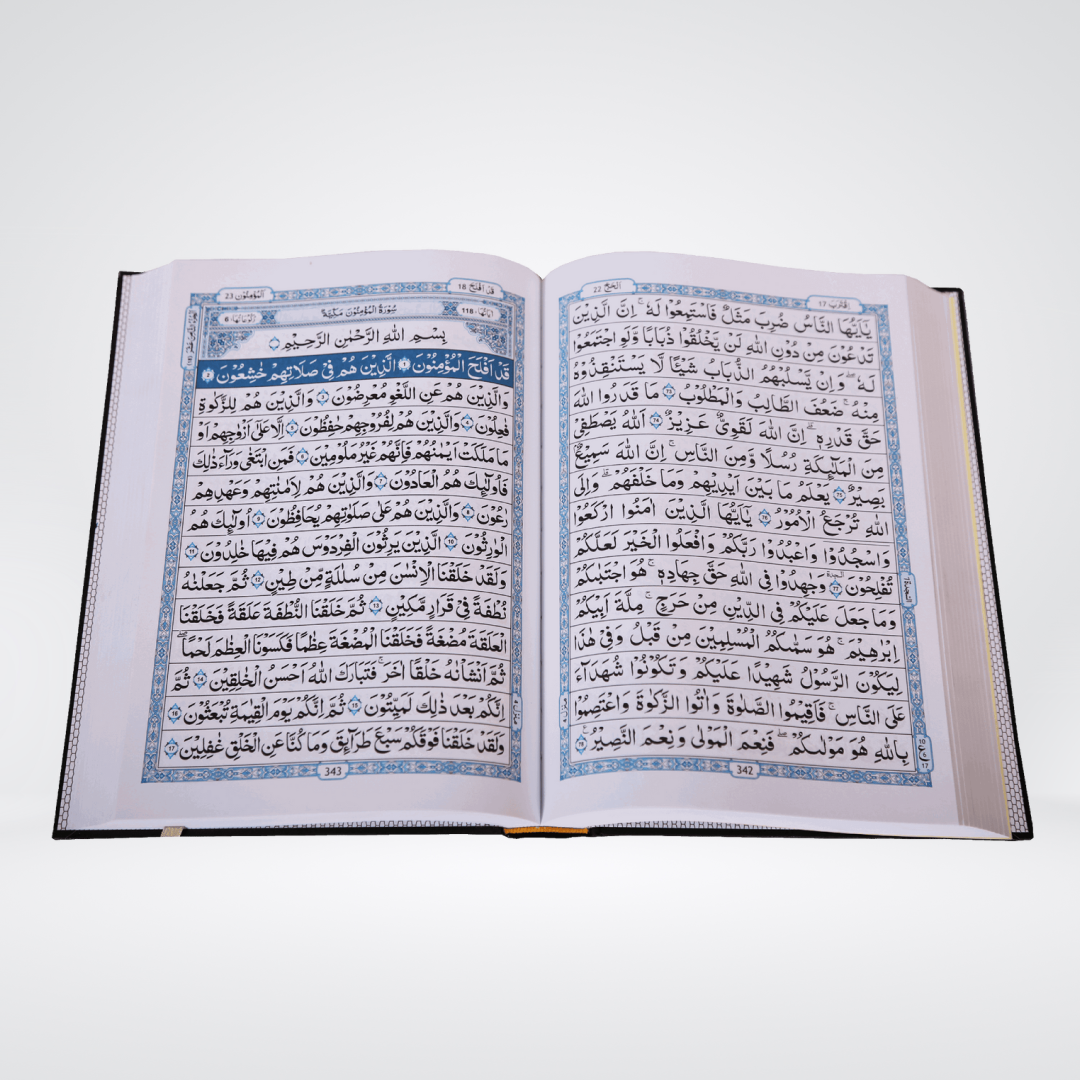 اِقْتَرَبَ 17
اَلْحَجّ 22
يٰۤاَيُّهَا النَّاسُ ضُرِبَ مَثَلٌ فَاسْتَمِعُوْا لَهٗ ؕ اِنَّ الَّذِيْنَ
تَدْعُوْنَ مِنْ دُوْنِ اللّٰهِ لَنْ يَّخْلُقُوْا ذُبَابًا وَّلَوِ اجْتَمَعُوْا
لَهٗ ؕ وَاِنْ يَّسْلُبْهُمُ الذُّبَابُ شَيْـًٔا لَّا يَسْتَنْقِذُوْهُ
مِنْهُ ؕ ضَعُفَ الطَّالِبُ وَالْمَطْلُوْبُ ﴿73﴾ مَا قَدَرُوا اللّٰهَ
حَقَّ قَدْرِهٖ ؕ اِنَّ اللّٰهَ لَقَوِيٌّ عَزِيْزٌ ﴿74﴾ اَللّٰهُ يَصْطَفِيْ
مِنَ الْمَلٰٓئِكَةِ رُسُلًا وَّمِنَ النَّاسِ ؕ اِنَّ اللّٰهَ سَمِيْعٌۢ
بَصِيْرٌ ﴿75﴾ يَعْلَمُ مَا بَيْنَ اَيْدِيْهِمْ وَمَا خَلْفَهُمْ ؕ وَاِلَى
اللّٰهِ تُرْجَعُ الْاُمُوْرُ ﴿76﴾ يٰۤاَيُّهَا الَّذِيْنَ اٰمَنُوا ارْكَعُوْا
وَاسْجُدُوْا وَاعْبُدُوْا رَبَّكُمْ وَافْعَلُوا الْخَيْرَ لَعَلَّكُمْ
تُفْلِحُوْنَ ﴿77﴾ وَجٰهِدُوْا فِي اللّٰهِ حَقَّ جِهَادِهٖ ؕ هُوَ اجْتَبٰىكُمْ
وَمَا جَعَلَ عَلَيْكُمْ فِي الدِّيْنِ مِنْ حَرَجٍ ؕ مِلَّةَ اَبِيْكُمْ
اِبْرٰهِيْمَ ؕ هُوَ سَمّٰىكُمُ الْمُسْلِمِيْنَ مِنْ قَبْلُ وَفِيْ هٰذَا
لِيَكُوْنَ الرَّسُوْلُ شَهِيْدًا عَلَيْكُمْ وَتَكُوْنُوْا شُهَدَآءَ
عَلَى النَّاسِ ۚ فَاَقِيْمُوا الصَّلٰوةَ وَاٰتُوا الزَّكٰوةَ وَاعْتَصِمُوْا
بِاللّٰهِ هُوَ مَوْلٰىكُمْ ۚ فَنِعْمَ الْمَوْلٰى وَنِعْمَ النَّصِيْرُ ﴿78﴾
342
قَدْ اَفْلَحَ 18
اَلْمُؤْمِنُوْن 23
اٰيَاتُهَا 118
سُوْرَةُ الْمُؤْمِنُوْنَ مَكِّيَّةٌ
رُكُوْعَاتُهَا 6
بِسْمِ اللّٰهِ الرَّحْمٰنِ الرَّحِيْمِ
قَدْ اَفْلَحَ الْمُؤْمِنُوْنَ ﴿1﴾ الَّذِيْنَ هُمْ فِيْ صَلَاتِهِمْ خٰشِعُوْنَ ﴿2﴾
وَالَّذِيْنَ هُمْ عَنِ اللَّغْوِ مُعْرِضُوْنَ ﴿3﴾ وَالَّذِيْنَ هُمْ لِلزَّكٰوةِ
فٰعِلُوْنَ ﴿4﴾ وَالَّذِيْنَ هُمْ لِفُرُوْجِهِمْ حٰفِظُوْنَ ﴿5﴾ اِلَّا عَلٰۤى اَزْوَاجِهِمْ اَوْ
مَا مَلَكَتْ اَيْمَانُهُمْ فَاِنَّهُمْ غَيْرُ مَلُوْمِيْنَ ﴿6﴾ فَمَنِ ابْتَغٰى وَرَآءَ ذٰلِكَ
فَاُولٰٓئِكَ هُمُ الْعَادُوْنَ ﴿7﴾ وَالَّذِيْنَ هُمْ لِاَمٰنٰتِهِمْ وَعَهْدِهِمْ
رٰعُوْنَ ﴿8﴾ وَالَّذِيْنَ هُمْ عَلٰى صَلَوٰتِهِمْ يُحَافِظُوْنَ ﴿9﴾ اُولٰٓئِكَ هُمُ
الْوٰرِثُوْنَ ﴿10﴾ الَّذِيْنَ يَرِثُوْنَ الْفِرْدَوْسَ هُمْ فِيْهَا خٰلِدُوْنَ ﴿11﴾
وَلَقَدْ خَلَقْنَا الْاِنْسَانَ مِنْ سُلٰلَةٍ مِّنْ طِيْنٍ ﴿12﴾ ثُمَّ جَعَلْنٰهُ
نُطْفَةً فِيْ قَرَارٍ مَّكِيْنٍ ﴿13﴾ ثُمَّ خَلَقْنَا النُّطْفَةَ عَلَقَةً فَخَلَقْنَا
الْعَلَقَةَ مُضْغَةً فَخَلَقْنَا الْمُضْغَةَ عِظٰمًا فَكَسَوْنَا الْعِظٰمَ لَحْمًا
ثُمَّ اَنْشَاْنٰهُ خَلْقًا اٰخَرَ ؕ فَتَبَارَكَ اللّٰهُ اَحْسَنُ الْخٰلِقِيْنَ ﴿14﴾ ثُمَّ
اِنَّكُمْ بَعْدَ ذٰلِكَ لَمَيِّتُوْنَ ﴿15﴾ ثُمَّ اِنَّكُمْ يَوْمَ الْقِيٰمَةِ تُبْعَثُوْنَ ﴿16﴾
وَلَقَدْ خَلَقْنَا فَوْقَكُمْ سَبْعَ طَرَآئِقَ وَمَا كُنَّا عَنِ الْخَلْقِ غٰفِلِيْنَ ﴿17﴾
343